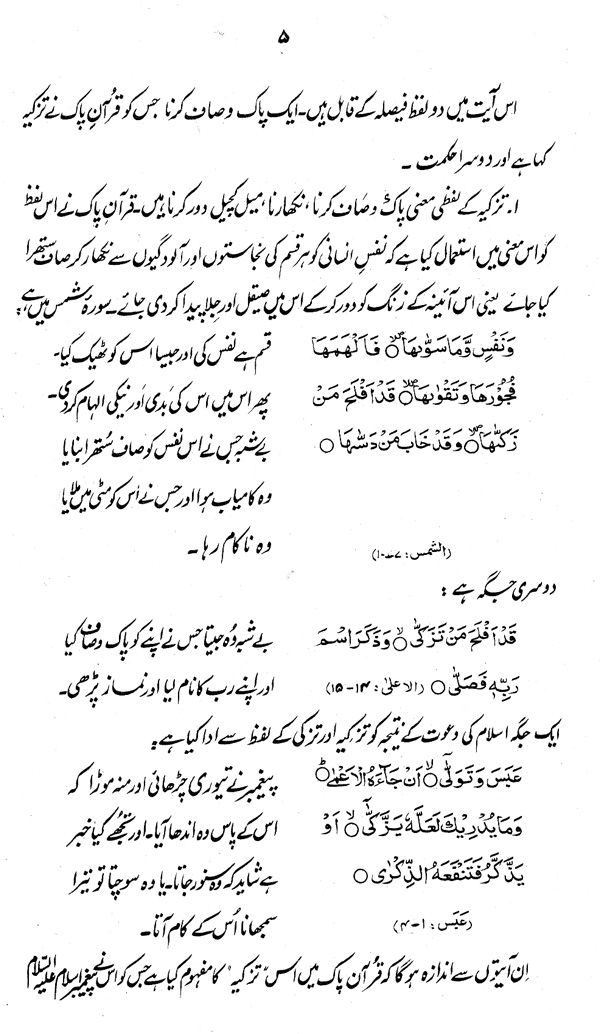 ۵
اس آیت میں دو لفظ فیصلہ کے قابل ہیں۔ ایک پاک و صاف کرنا جس کو قرآنِ پاک نے تزکیہ
کہا ہے اور دوسرا حکمت ۔
۱۔ تزکیہ کے لفظی معنی پاک و صاف کرنا، نکھارنا، میل کچیل دور کرنا ہیں۔ قرآن پاک نے اس لفظ
کو اس معنی میں استعمال کیا ہے کہ نفسِ انسانی کو ہر قسم کی نجاستوں اور آلودگیوں سے نکھار کر صاف ستھرا
کیا جائے یعنی اس آئینہ کے زنگ کو دور کر کے اس میں صیقل اور جِلا پیدا کر دی جائے۔ سورۂ شمس میں ہے:
وَنَفْسٍ وَّمَا سَوّٰىهَا ۝ فَاَلْهَمَهَا
قسم ہے نفس کی اور جیسا اس کو ٹھیک کیا۔
فُجُوْرَهَا وَتَقْوٰىهَا ۝ قَدْ اَفْلَحَ مَنْ
پھر اس میں اس کی بَدی اور نیکی الہام کر دی۔
زَكّٰىهَا ۝ وَقَدْ خَابَ مَنْ دَسّٰىهَا ۝
بے شبہ جس نے اس نفس کو صاف سُتھرا بنایا
وہ کامیاب ہوا اور جس نے اُس کو مٹی میں ملایا
وہ ناکام رہا ۔
(الشمس: ۷-۱۰)
دوسری جگہ ہے :
قَدْ اَفْلَحَ مَنْ تَزَكّٰى ۝ وَذَكَرَ اسْمَ
بے شبہ وہ جیتا جس نے اپنے کو پاک و صاف کیا
رَبِّهٖ فَصَلّٰى ۝ (الاعلیٰ: ۱۴-۱۵)
اور اپنے رب کا نام لیا اور نماز پڑھی۔
ایک جگہ اسلام کی دعوت کے نتیجہ کو تزکیہ اور تزکی کے لفظ سے ادا کیا ہے:
عَبَسَ وَتَوَلّٰى ۝ اَنْ جَآءَهُ الْاَعْمٰى ۝
پیغمبر نے تیوری چڑھائی اور منہ موڑا کہ
وَمَا يُدْرِيْكَ لَعَلَّهٗ يَزَّكّٰى ۝ اَوْ
اس کے پاس وہ اندھا آیا۔ اور تجھے کیا خبر
يَذَّكَّرُ فَتَنْفَعَهُ الذِّكْرٰى ۝
ہے شاید کہ وہ سنور جاتا۔ یا وہ سوچتا تو تیرا
سمجھانا اُس کے کام آتا۔
(عَبَسَ: ۱-۴)
اِن آیتوں سے اندازہ ہو گا کہ قرآنِ پاک میں اس "تزکیہ" کا مفہوم کیا ہے جس کو اس نے پیغمبرِ اسلام علیہ السلام